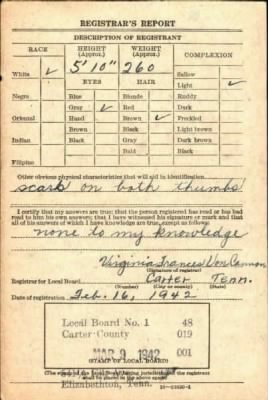 REGISTRAR'S REPORT
DESCRIPTION OF REGISTRANT
RACE HEIGHT (Approx.) WEIGHT (Approx.) COMPLEXION
5' 10" 260
White ✓ Sallow
EYES HAIR Light ✓
Negro Blue Blonde Ruddy
Gray ✓ Red Dark
Oriental Hazel Brown ✓ Freckled
Brown Black Light brown
Indian Black Gray Dark brown
Bald Black
Filipino
Other obvious physical characteristics that will aid in identification
scars on both thumbs
I certify that my answers are true; that the person registered has read or has had
read to him his own answers; that I have witnessed his signature or mark and that
all of his answers of which I have knowledge are true, except as follows:
none to my knowledge
Virginia Frances Von Cannon
(Signature of registrar)
Registrar for Local Board Carter Tenn.
(Number) (City or county) (State)
Date of registration Feb. 16, 1942
Local Board No. 1 48
Carter County 019
MAR 9 1942 001
(STAMP OF LOCAL BOARD)
(The stamp of the Local Board
shall be placed in the above space)
Elizabethton, Tenn.